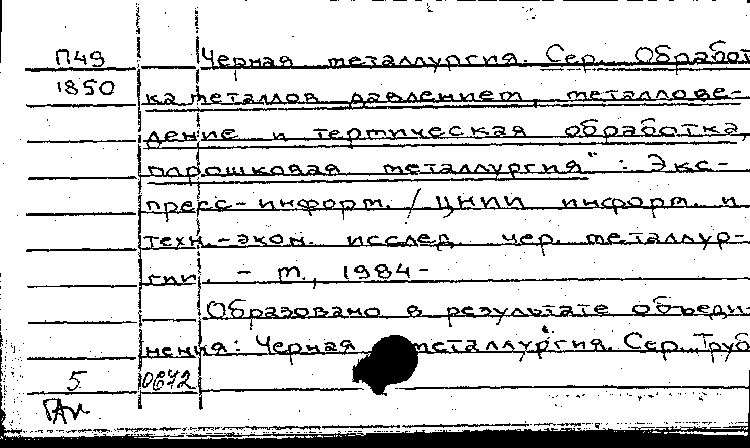 П49 Черная металлургия. Сер. Обработ
1850 ка металлов давлением, металлове-
дение и термическая обработка,
порошковая металлургия" : Экс-
пресс-информ. / ЦНИИ информ. и
техн.-экон. исслед. чер. металлур-
гии. - М., 1984-
Образовано в результате объеди-
нения: Черная металлургия. Сер. "Труб
5 0672